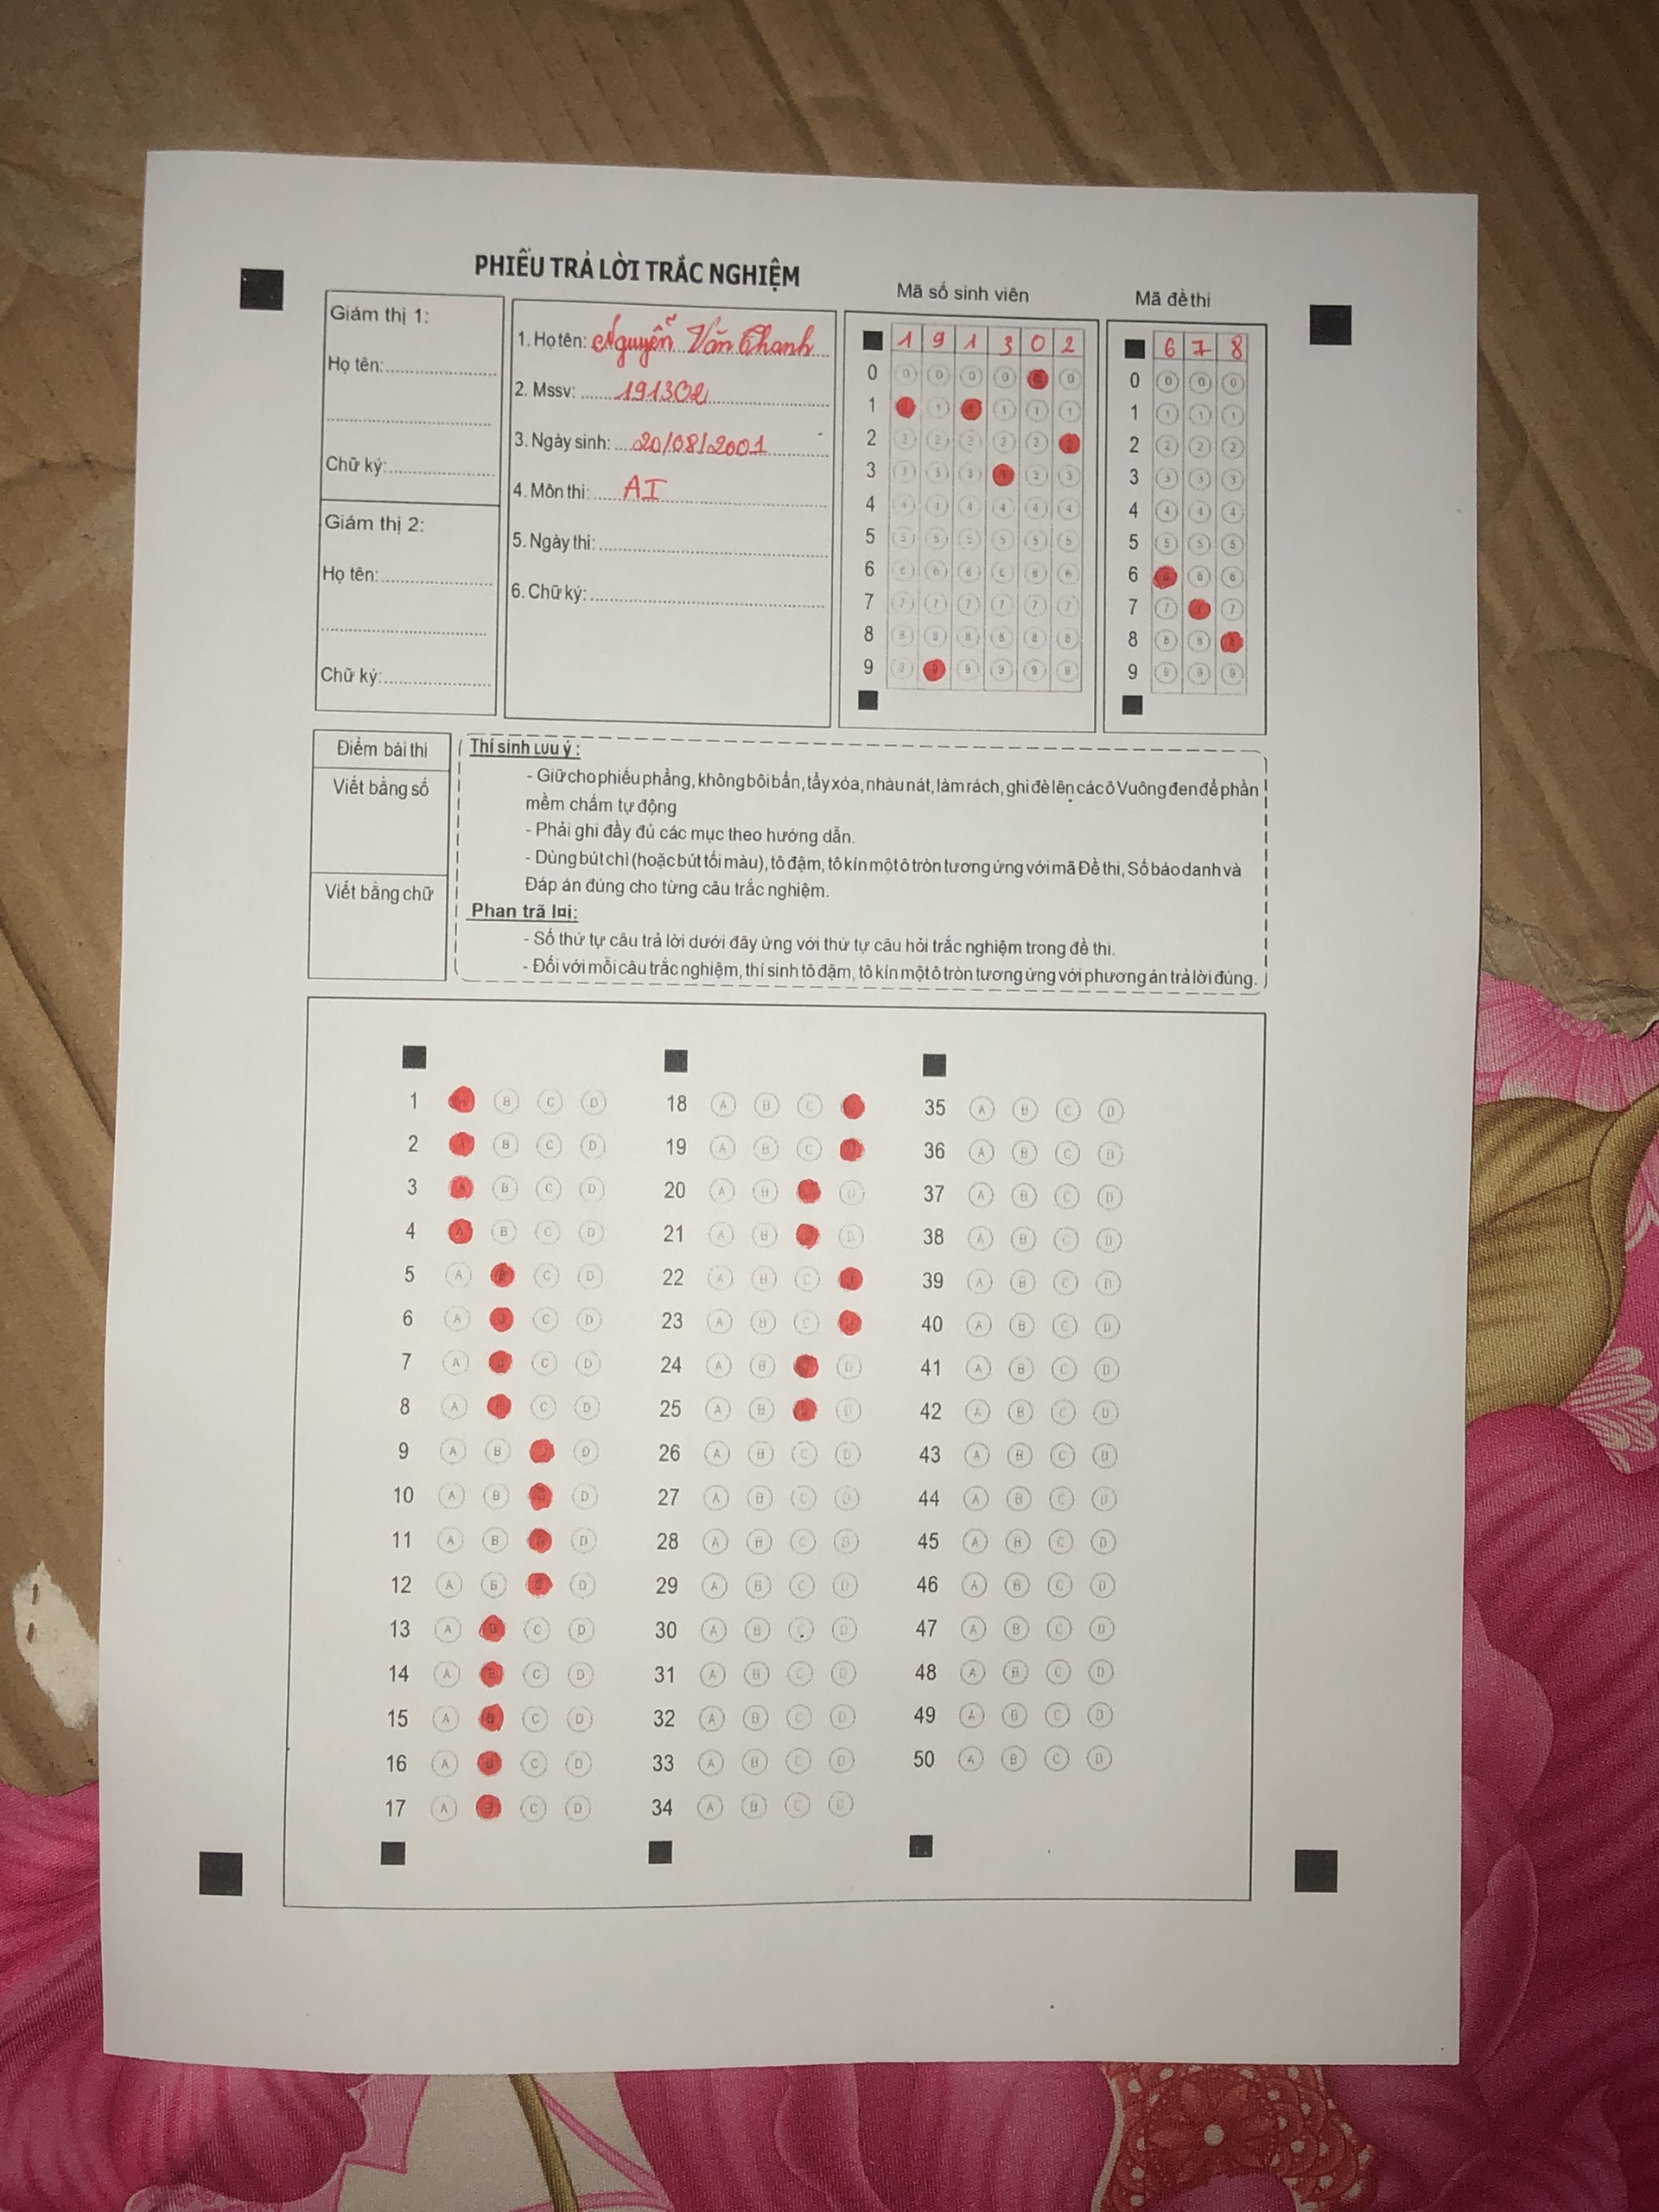 PHIẾU TRẢ LỜI TRẮC NGHIỆM
Giám thị 1:
Họ tên:
Chữ ký:
Giám thị 2:
Họ tên:
Chữ ký:
1. Họ tên: Nguyễn Văn Thanh
2. Mssv: 191302
3. Ngày sinh: 20/08/2001
4. Môn thi: AI
5. Ngày thi:
6. Chữ ký:
Mã số sinh viên
1 9 1 3 0 2
0 0 0 0 0 0
1 1 1 1 1
2 2 2 2 2 2
3 3 3 3 3
4 4 4 4 4 4 4
5 5 5 5 5 5 5
6 6 6 6 6 6 6
7 7 7 7 7 7 7
8 8 8 8 8 8 8
9 9 9 9 9 9 9
Mã đề thi
6 7 8
0 0 0 0
1 1 1 1
2 2 2 2
3 3 3 3
4 4 4 4
5 5 5 5
6 6 6
7 7 7
8 8 8
9 9 9 9
Điểm bài thi
Viết bằng số
Viết bằng chữ
Thí sinh Lưu ý :
- Giữ cho phiếu phẳng, không bôi bẩn, tẩy xóa, nhàu nát, làm rách, ghi đè lên các ô Vuông đen để phần
mềm chấm tự động
- Phải ghi đầy đủ các mục theo hướng dẫn.
- Dùng bút chì (hoặc bút tối màu), tô đậm, tô kín một ô tròn tương ứng với mã Đề thi, Số báo danh và
Đáp án đúng cho từng câu trắc nghiệm.
Phan trã lại:
- Số thứ tự câu trả lời dưới đây ứng với thứ tự câu hỏi trắc nghiệm trong đề thi.
- Đối với mỗi câu trắc nghiệm, thí sinh tô đậm, tô kín một ô tròn tương ứng với phương án trả lời đúng.
1 A B C D
2 A B C D
3 A B C D
4 A B C D
5 A B C D
6 A C D
7 A B C D
8 A B C D
9 A B D
10 A B D
11 A B D
12 A B D
13 A B C D
14 A B C D
15 A B C D
16 A B C D
17 A B C D
18 A B C
19 A B C
20 A B D
21 A B D
22 A B C
23 A B C
24 A B D
25 A B D
26 A B C D
27 A B C D
28 A B C D
29 A B C D
30 A B C D
31 A B C D
32 A B C D
33 A B C D
34 A B C D
35 A B C D
36 A B C D
37 A B C D
38 A B C D
39 A B C D
40 A B C D
41 A B C D
42 A B C D
43 A B C D
44 A B C D
45 A B C D
46 A B C D
47 A B C D
48 A B C D
49 A B C D
50 A B C D